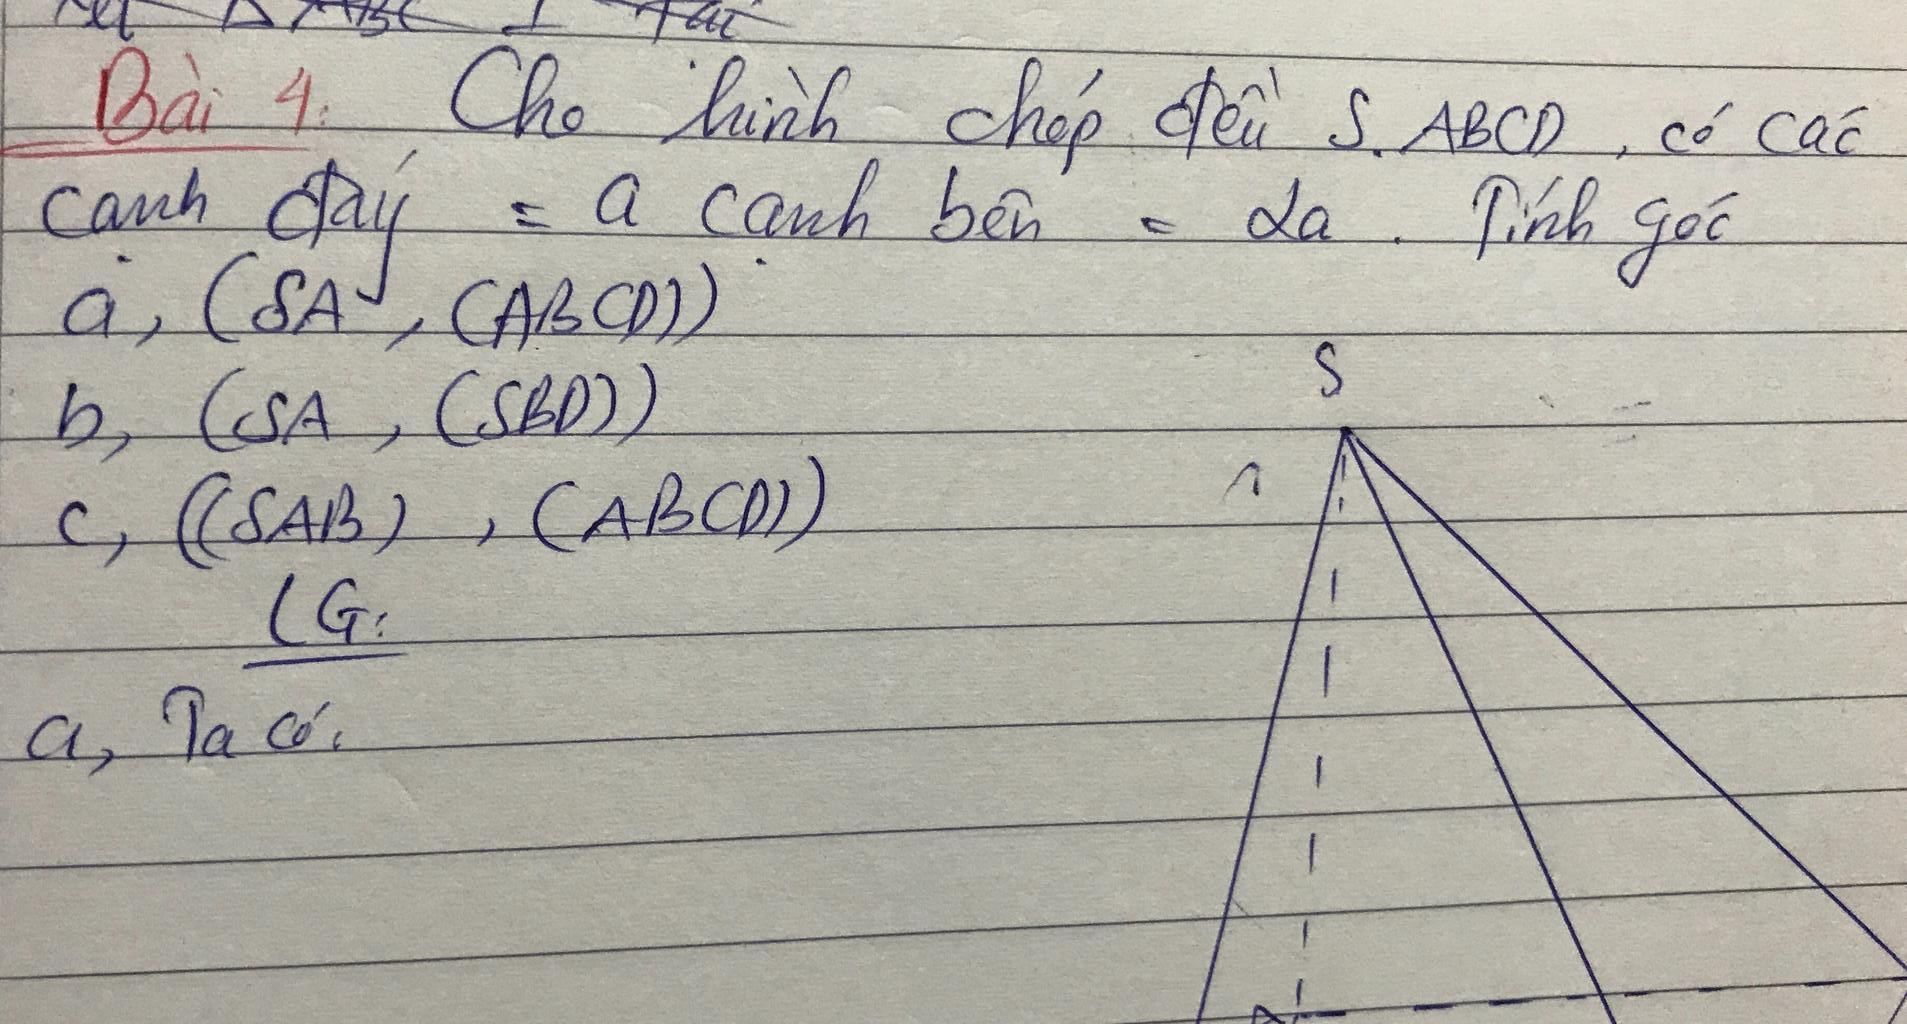 ABC ⊥ tại
Bài 4: Cho hình chóp đều S.ABCD, có các
cạnh đáy = a cạnh bên = 2a. Tính góc
a, (SA, (ABCD))
b, (SA, (SBD))
c, ((SAB), (ABCD))
LG:
a, Ta có:
S
A